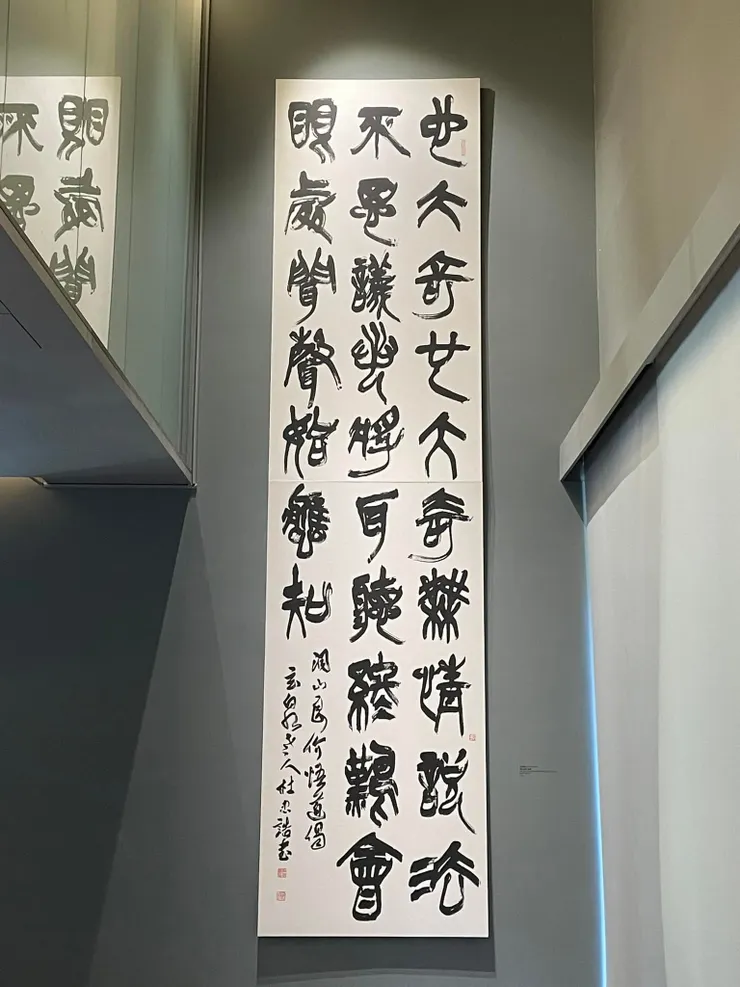 也大奇也大奇無情說法
不思議若將耳聽終難會
眼處聞聲始應知
洞山良价悟道偈
老人杜忠誥書